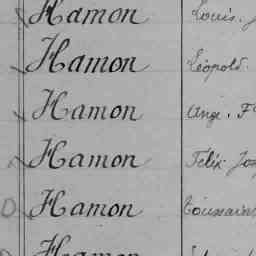 Hamon Louis. J
Hamon Léopold.
Hamon Ange. F
Hamon Félix Jos
Hamon Toussaint
Hamon